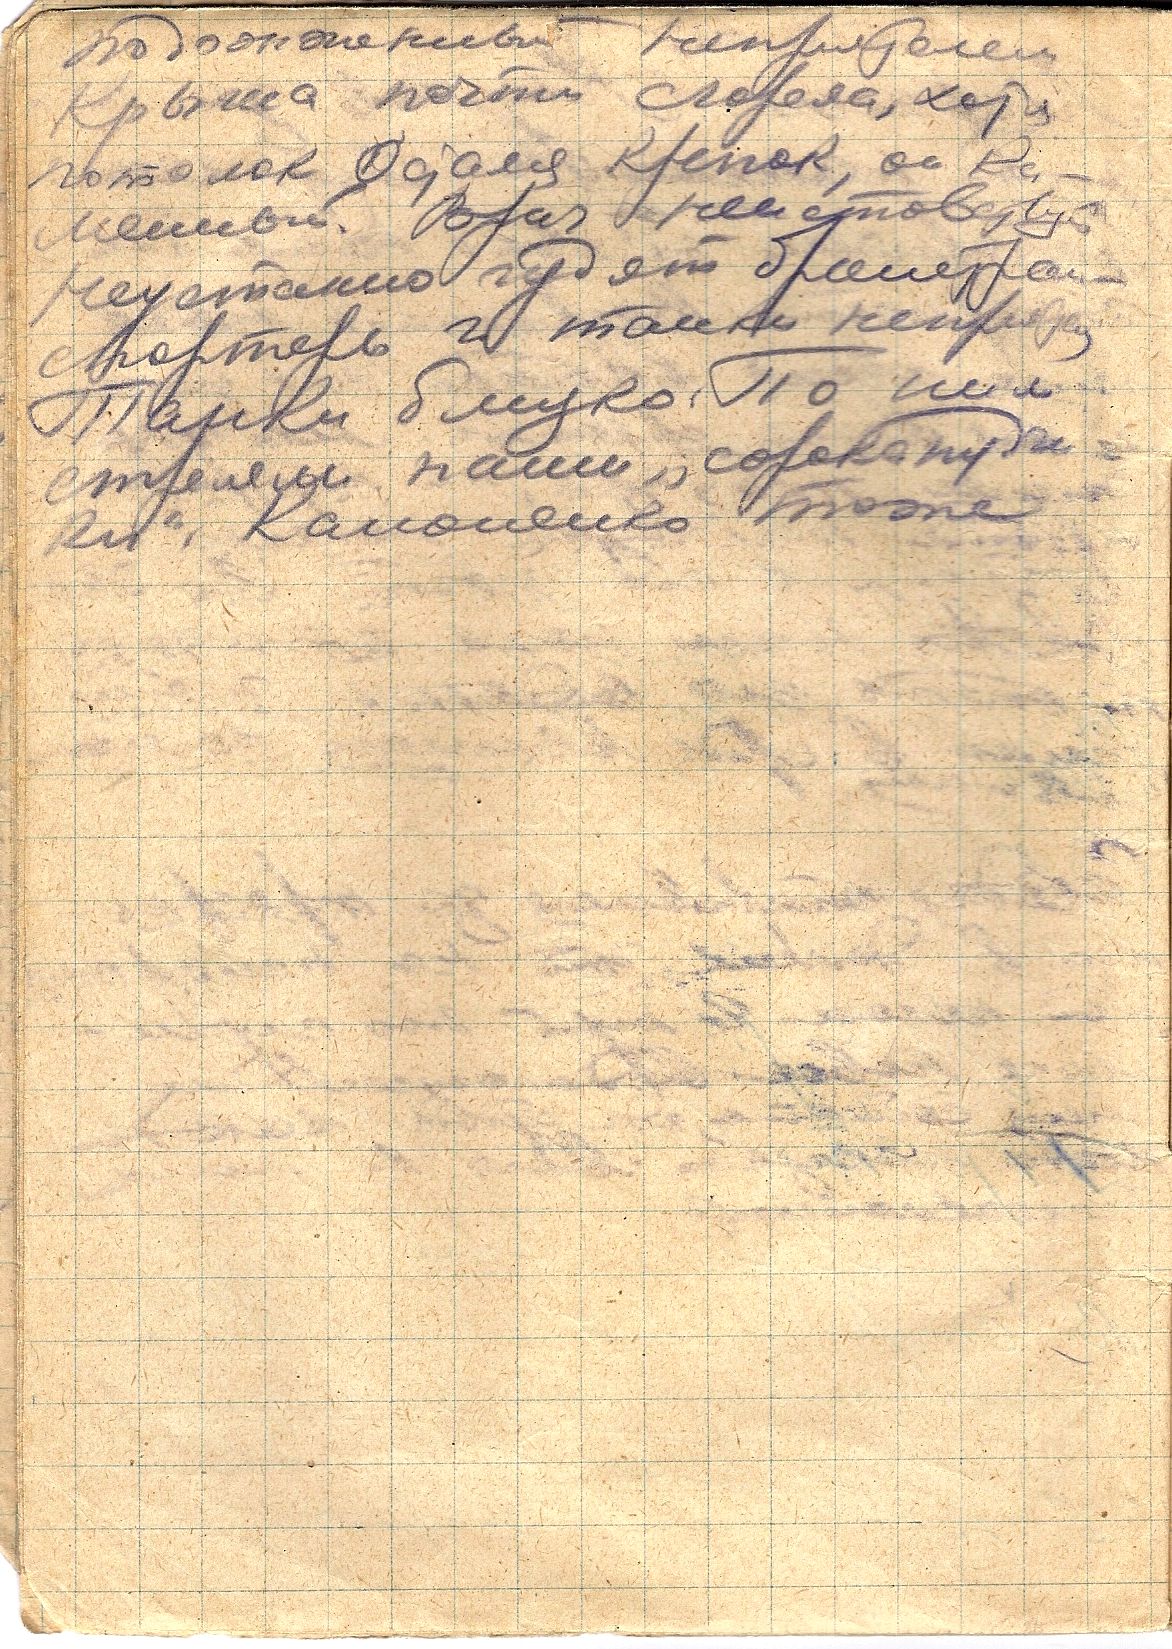 подожженный неприятелем
Крыша почти сгорела, хотя
потолок крепок, он ка-
менный. Враг неистовствует
Неустанно гудят бронетран-
спортеры и танки неприят
Танки близко. По ним
стреляли наши „сорокапят-
ки". Каноненко тоже